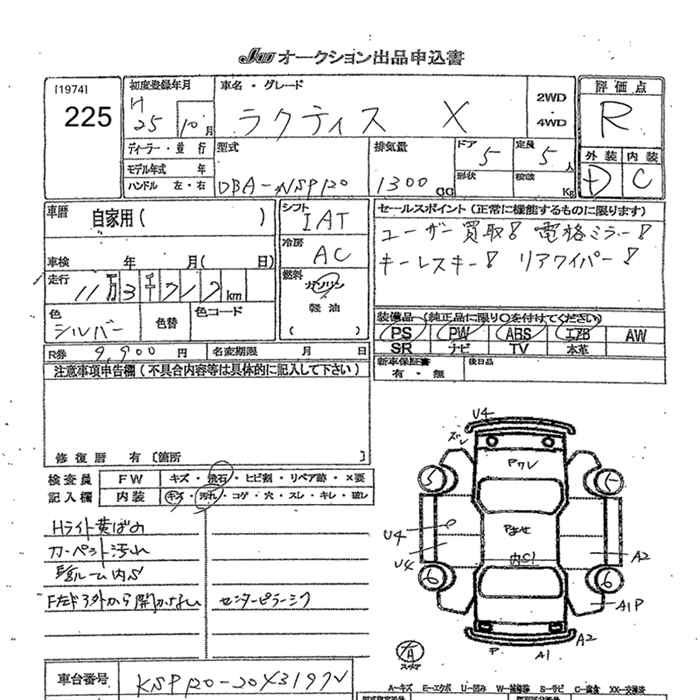 JU オークション出品申込書
[1974]
225
初度登録年月
H 25 10 月
車名・グレード
ラクティス X
2WD
・
4WD
評価点
R
ディーラー・並行
モデル年式 年
ハンドル 左・右
型式
DBA-NSP120
排気量
1300 cc
ドア 5
形状
定員 5 人
積載 Kg
外装 内装
D C
車歴
自家用 ( )
車検 年 月( 日)
シフト
IAT
冷房
AC
燃料
ガソリン
軽油
( )
セールスポイント (正常に機能するものに限ります)
ユーザー買取! 電格ミラー!
キーレスキー! リアワイパー!
走行
11万3千717km
色
シルバー
色替
色コード
装備品 (純正品に限り○を付けてください)
PS PW ABS エアB AW
SR ナビ TV 本革
R券 9,900 円
名変期限 月 日
新車保証書
有・無
後日品
注意事項申告欄 (不具合内容等は具体的に記入して下さい)
修復歴 有 [箇所 ]
検査員
記入欄
FW キズ・飛石・ヒビ割・リペア跡・×要
内装 キズ・汚れ・コゲ・穴・スレ・キレ・破レ
Hライト黄ばみ
カーペット汚れ
F左ドア外から開かない
センターピラーミク
U4
ズレ
Pワレ
5
5
U4
U4
Pあせ
内S1
A2
6
6
A1P
P
A1
A2
A
スペア
車台番号
A=キズ E=エクボ U=凹み W=補修等 S=サビ C=腐食 XX=交換済